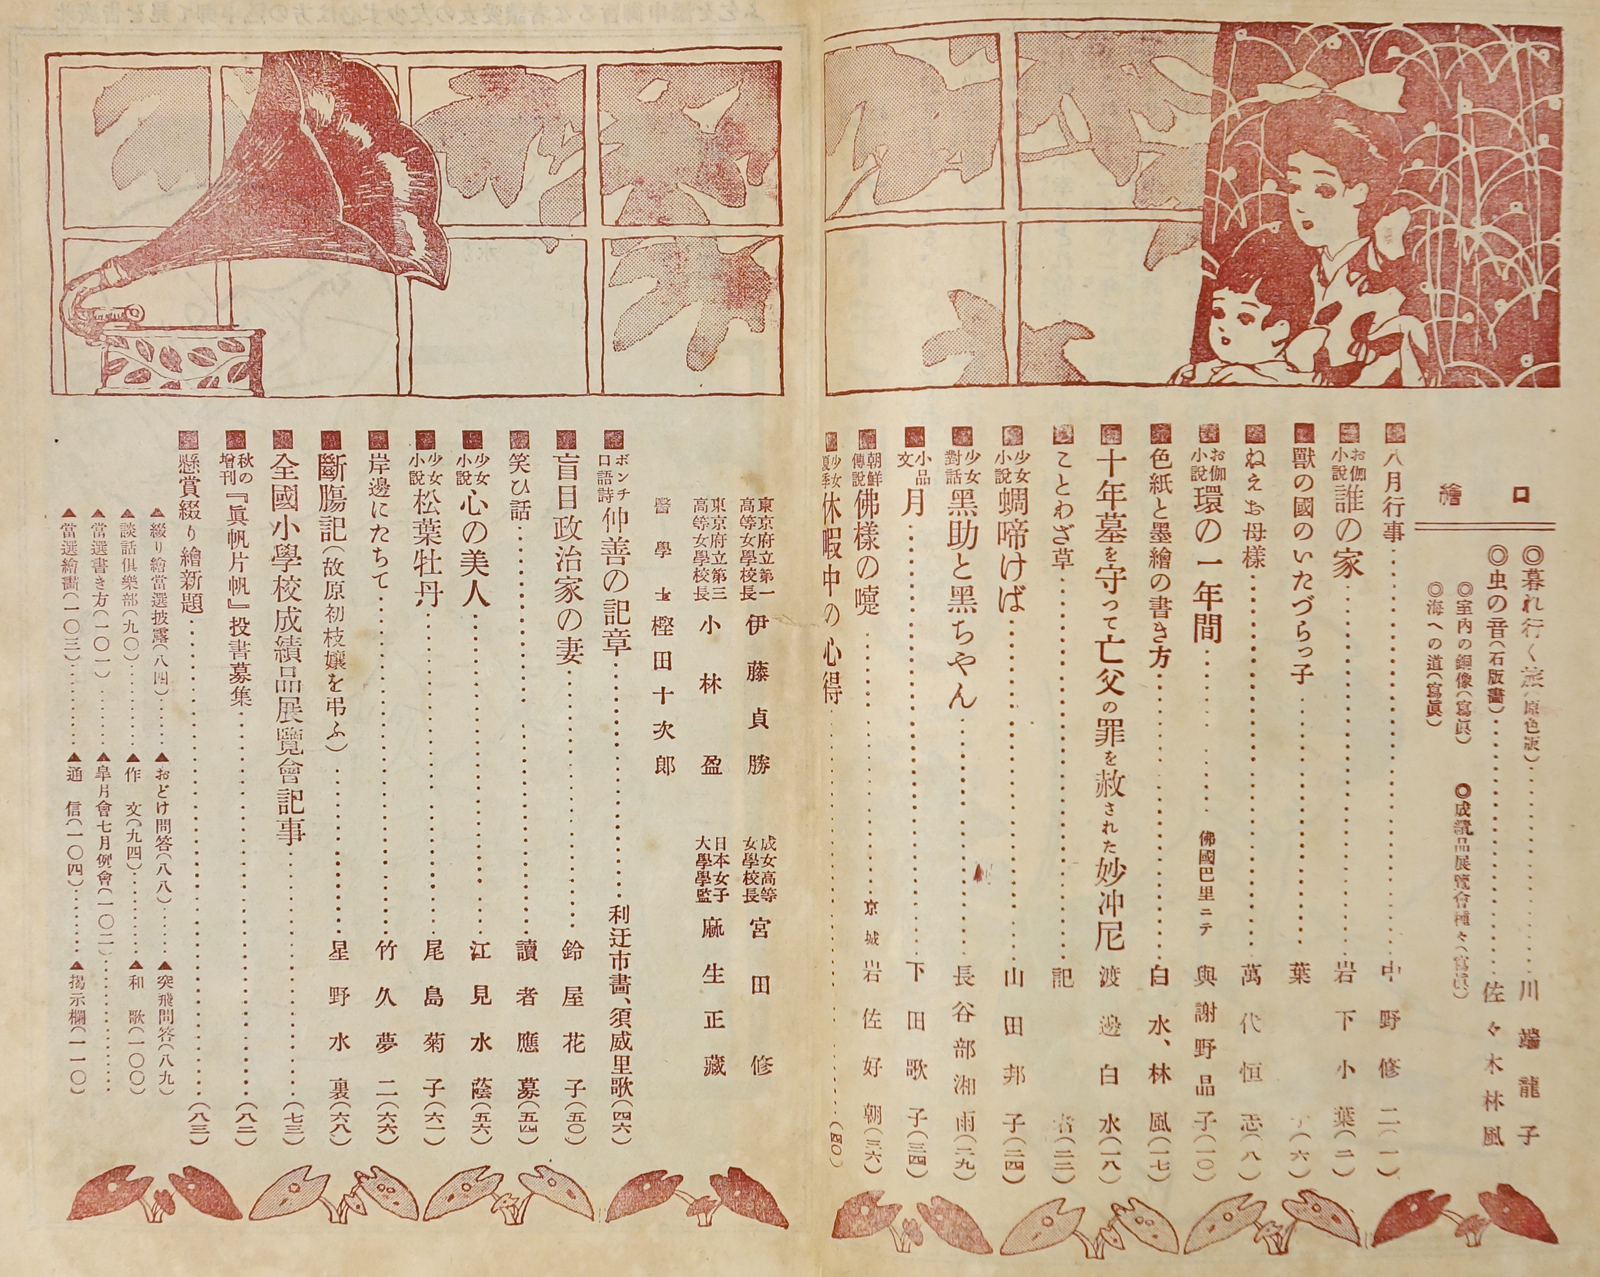 口繪
◎暮れ行く旅(原色版)‥‥‥川端龍子
◎虫の音(石版畵)‥‥‥佐々木林風
◎室内の銅像(寫眞) ◎成績品展覽會種々(寫眞)
◎海への道(寫眞)
八月行事‥‥‥中野修二(一)
お伽小說 誰の家‥‥‥岩下小葉(二)
獸の國のいたづらっ子‥‥‥葉(六)
ねえお母樣‥‥‥萬代恒志(八)
お伽小說 環の一年間‥‥‥佛國巴里ニテ 與謝野晶子(一〇)
色紙と墨繪の書き方‥‥‥白水、林風(一七)
十年墓を守って亡父の罪を赦された妙沖尼 渡邊白水(一八)
ことわざ草‥‥‥記者(二二)
少女小說 蜩啼けば‥‥‥山田邦子(二四)
少女對話 黑助と黑ちやん‥‥‥長谷部湘雨(二九)
小品文 月‥‥‥下田歌子(三四)
朝鮮傳說 佛樣の嚔‥‥‥京城 岩佐好朝(三六)
少女夏季 休暇中の心得‥‥‥(四〇)
東京府立第一高等女學校長 伊藤貞勝 成女高等女學校長 宮田修
東京府立第三高等女學校長 小林盈 日本女子大學學監 麻生正藏
醫學士 樫田十次郎
ポンチ口語詩 仲善の記章‥‥‥利迂市畵、須威里歌(四六)
盲目政治家の妻‥‥‥鈴屋花子(五〇)
笑ひ話‥‥‥讀者應募(五四)
少女小說 心の美人‥‥‥江見水蔭(五六)
少女小說 松葉牡丹‥‥‥尾島菊子(六一)
岸邊にたちて‥‥‥竹久夢二(六六)
斷膓記(故原初枝孃を弔ふ)‥‥‥星野水裏(六八)
全國小學校成績品展覽會記事‥‥‥(七三)
秋の增刊『眞帆片帆』投書募集‥‥‥(八二)
懸賞綴り繪新題‥‥‥(八三)
▲綴り繪當選披露(八四)‥‥‥▲おどけ問答(八八)‥‥‥▲突飛問答(八九)
▲談話俱樂部(九〇)‥‥‥▲作文(九四)‥‥‥▲和歌(一〇〇)
▲當選書き方(一〇一)‥‥‥▲皐月會七月例會(一〇二)‥‥‥
▲當選繪畵(一〇三)‥‥‥▲通信(一〇四)‥‥‥▲揭示欄(一一〇)